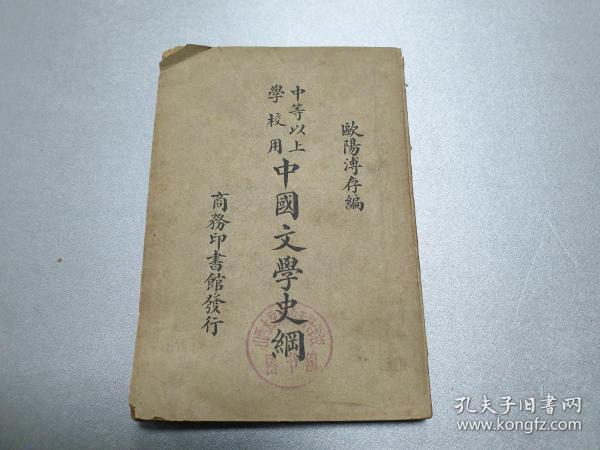 歐陽溥存編
中等以上
學校用
中國文學史綱
商務印書館發行
孔夫子旧书网
www.kongfz.com